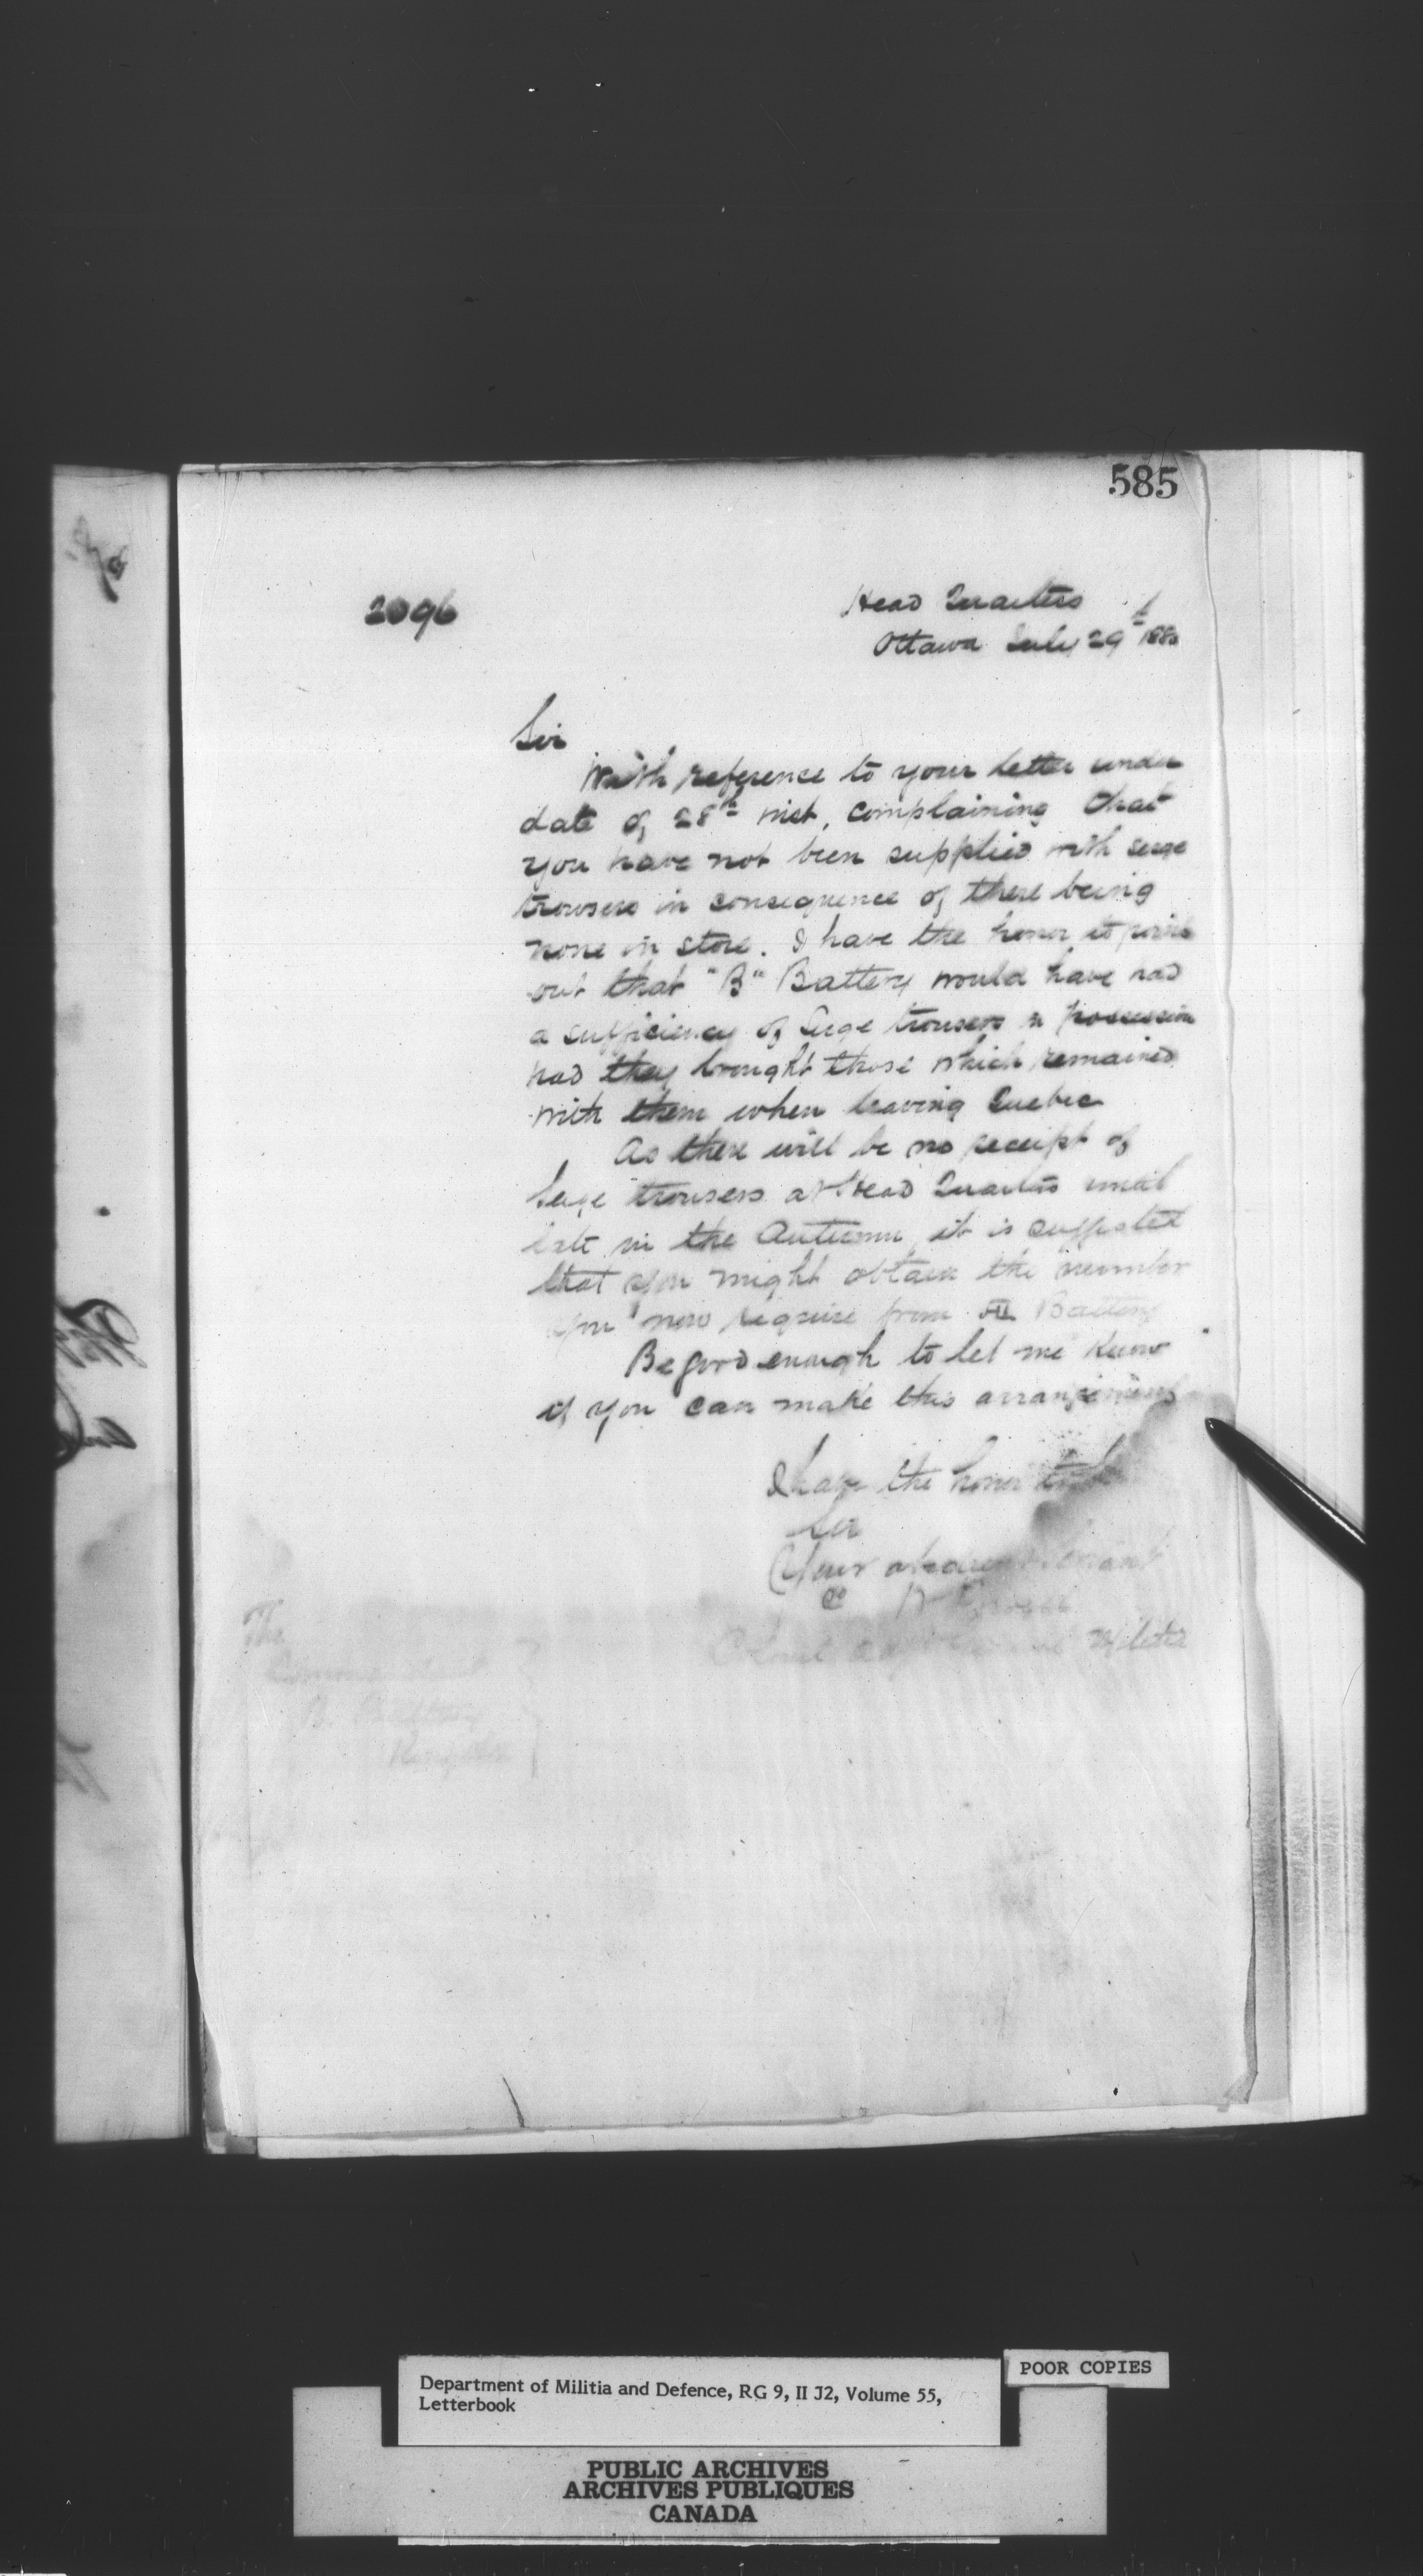 585
2096
Head Quarters
Ottawa July 29th 1880
Sir
With reference to your letter under
date of 28th inst, complaining that
you have not been supplied with serge
trousers in consequence of there being
none in store. I have the honor to point
out that "B" Battery would have had
a sufficiency of serge trousers in possession
had they brought those which remained
with them when leaving Quebec
As there will be no receipt of
Serge trousers at Head Quarters until
late in the Autumn it is suggested
that you might obtain the number
you now require from Battery
Be good enough to let me know
if you can make this arrangement
I have the honor to be
Sir
Your obedient Servant
Militia
The
B. Battery
Kingston
Department of Militia and Defence, RG 9, II J2, Volume 55,
Letterbook
POOR COPIES
PUBLIC ARCHIVES
ARCHIVES PUBLIQUES
CANADA